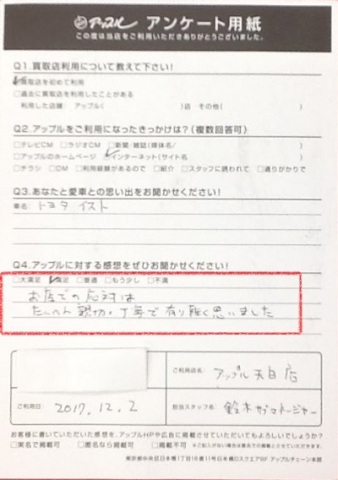 アップル アンケート用紙
この度は当店をご利用いただきありがとうございました。
Q1.買取店利用について教えて下さい!
買取店を初めて利用
□過去に買取店を利用したことがある
利用した店舗 アップル( )店 その他( )
Q2.アップルをご利用になったきっかけは?(複数回答可)
□テレビCM □ラジオCM □新聞・雑誌(媒体名/ )
□アップルのホームページ インターネット(サイト名 )
□チラシ □DM □利用経験があるので □紹介 □スタッフに誘われて □通りがかりで
Q3.あなたと愛車との思い出をお聞かせください!
車名:トヨタ イスト
Q4.アップルに対する感想をぜひお聞かせください!
□大満足 満足 □普通 □もう少し □不満
お店での応対は
たいへん親切・丁寧で有り難く思いました
ご利用店名: アップル天白店
ご利用日: 2017.12.2
担当スタッフ名: 鈴木サブマネージャー
お客様に書いていただいた感想を、アップルHPや広告に掲載させていただいてもよろしいでしょうか?
□実名で掲載可 □匿名なら掲載可 □掲載不可